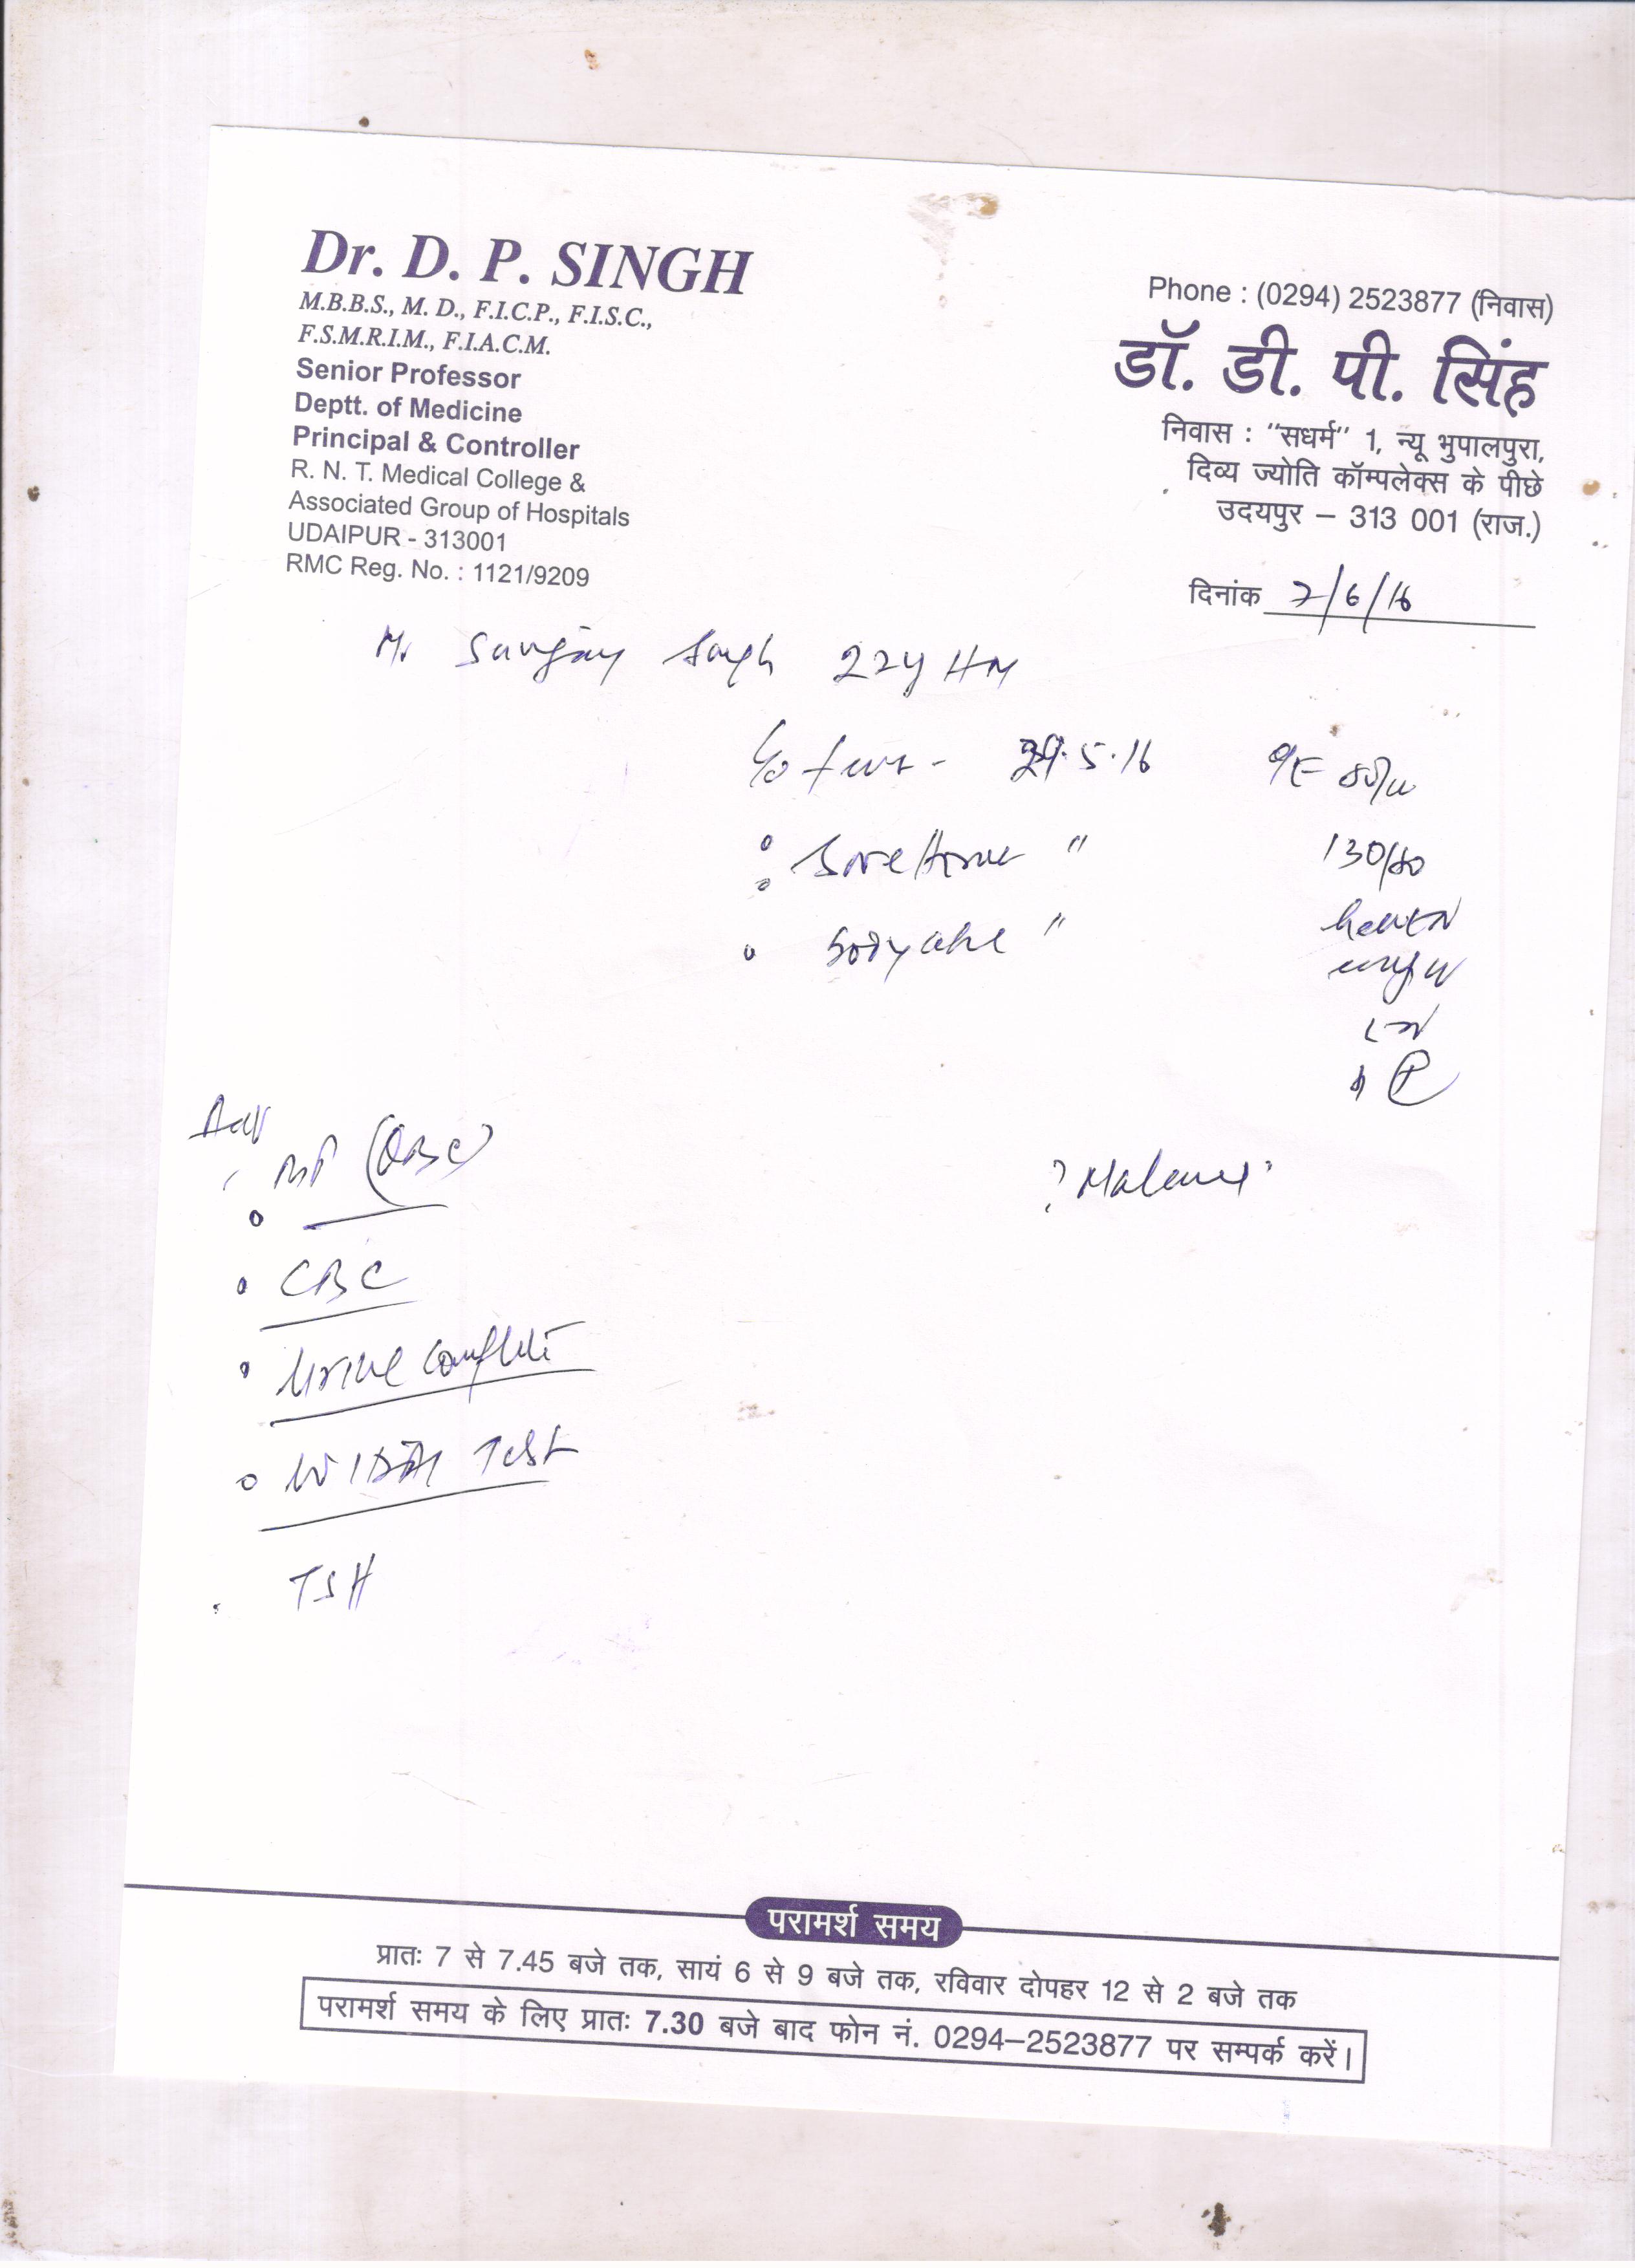 Dr. D. P. SINGH
M.B.B.S., M. D., F.I.C.P., F.I.S.C.,
F.S.M.R.I.M., F.I.A.C.M.
Senior Professor
Deptt. of Medicine
Principal & Controller
R. N. T. Medical College &
Associated Group of Hospitals
UDAIPUR - 313001
RMC Reg. No. : 1121/9209
Phone : (0294) 2523877 (निवास)
डॉ. डी. पी. सिंह
निवास : "सधर्म" 1, न्यू भुपालपुरा,
दिव्य ज्योति कॉम्पलेक्स के पीछे
उदयपुर – 313 001 (राज.)
दिनांक 2/6/16
Mr Sanjay Singh 22y HM
C/o fever - 29.5.16 O/E
Sore throat "
130/80
Bodyache "
? Malaria
Adv
MP (QBC)
CBC
Urine Complete
WIDAL Test
TSH
परामर्श समय
प्रातः 7 से 7.45 बजे तक, सायं 6 से 9 बजे तक, रविवार दोपहर 12 से 2 बजे तक
परामर्श समय के लिए प्रातः 7.30 बजे बाद फोन नं. 0294–2523877 पर सम्पर्क करें।